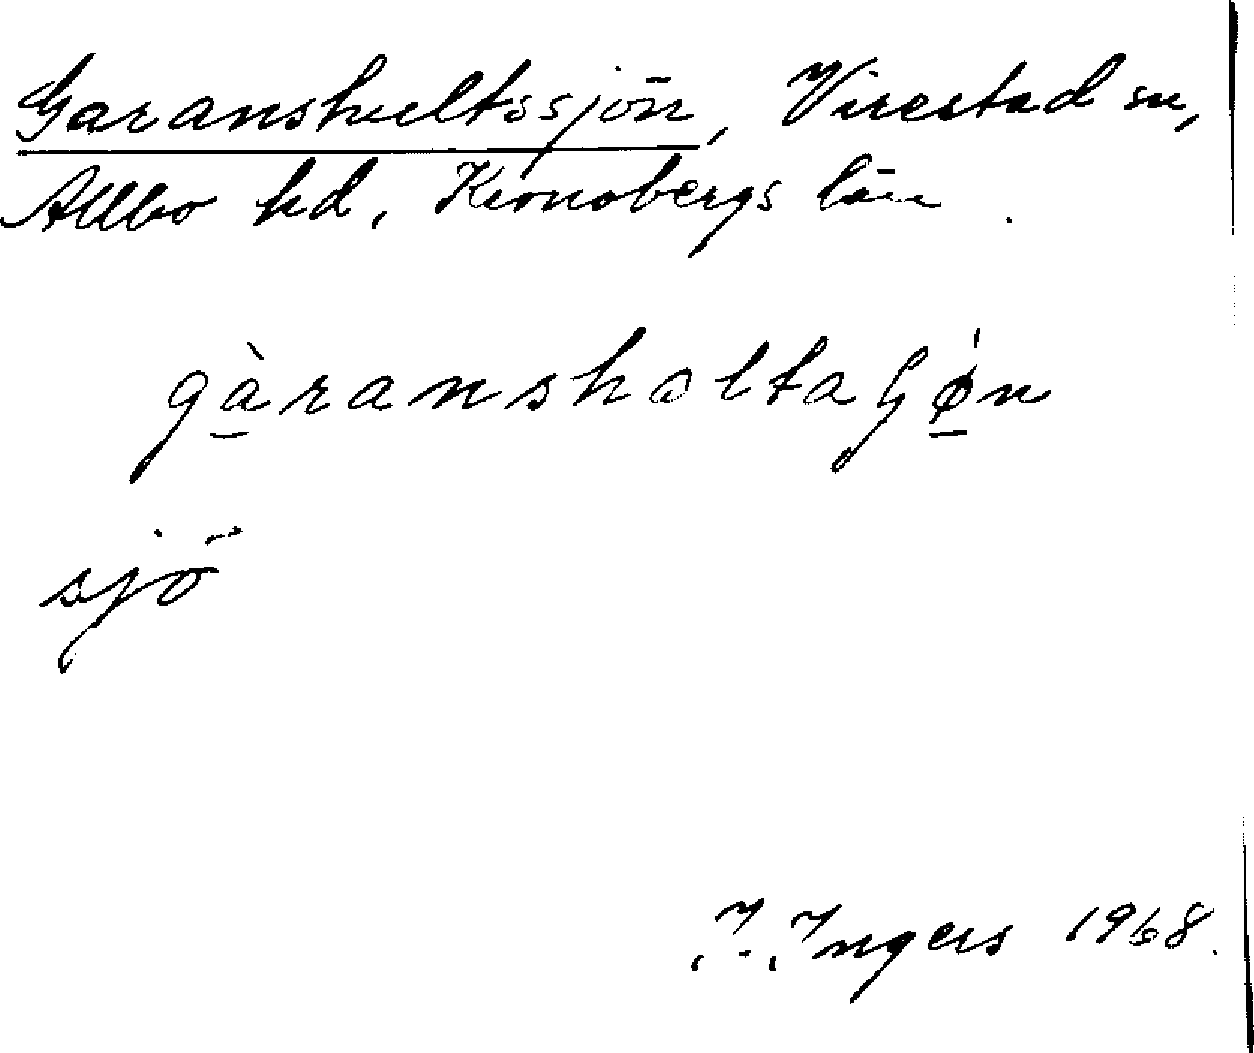 Garanshultssjön, Virestad sn,
Allbo hd, Kronobergs län.
gàransholtaʃǿn
sjö
I. Ingers 1968.